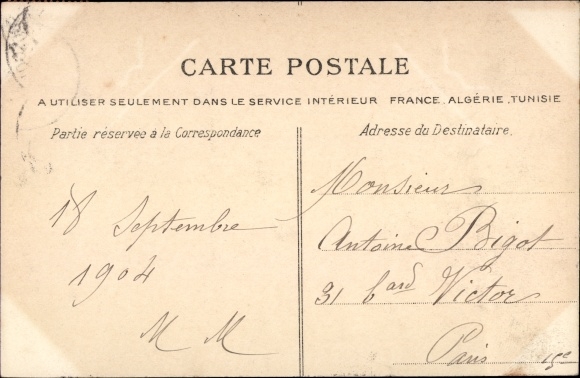 CARTE POSTALE
A UTILISER SEULEMENT DANS LE SERVICE INTÉRIEUR FRANCE, ALGÉRIE, TUNISIE
Partie réservée à la Correspondance
Adresse du Destinataire.
18 Septembre
1904
M M
Monsieur
Antoine Bigot
31 bard Victor
Paris 15e